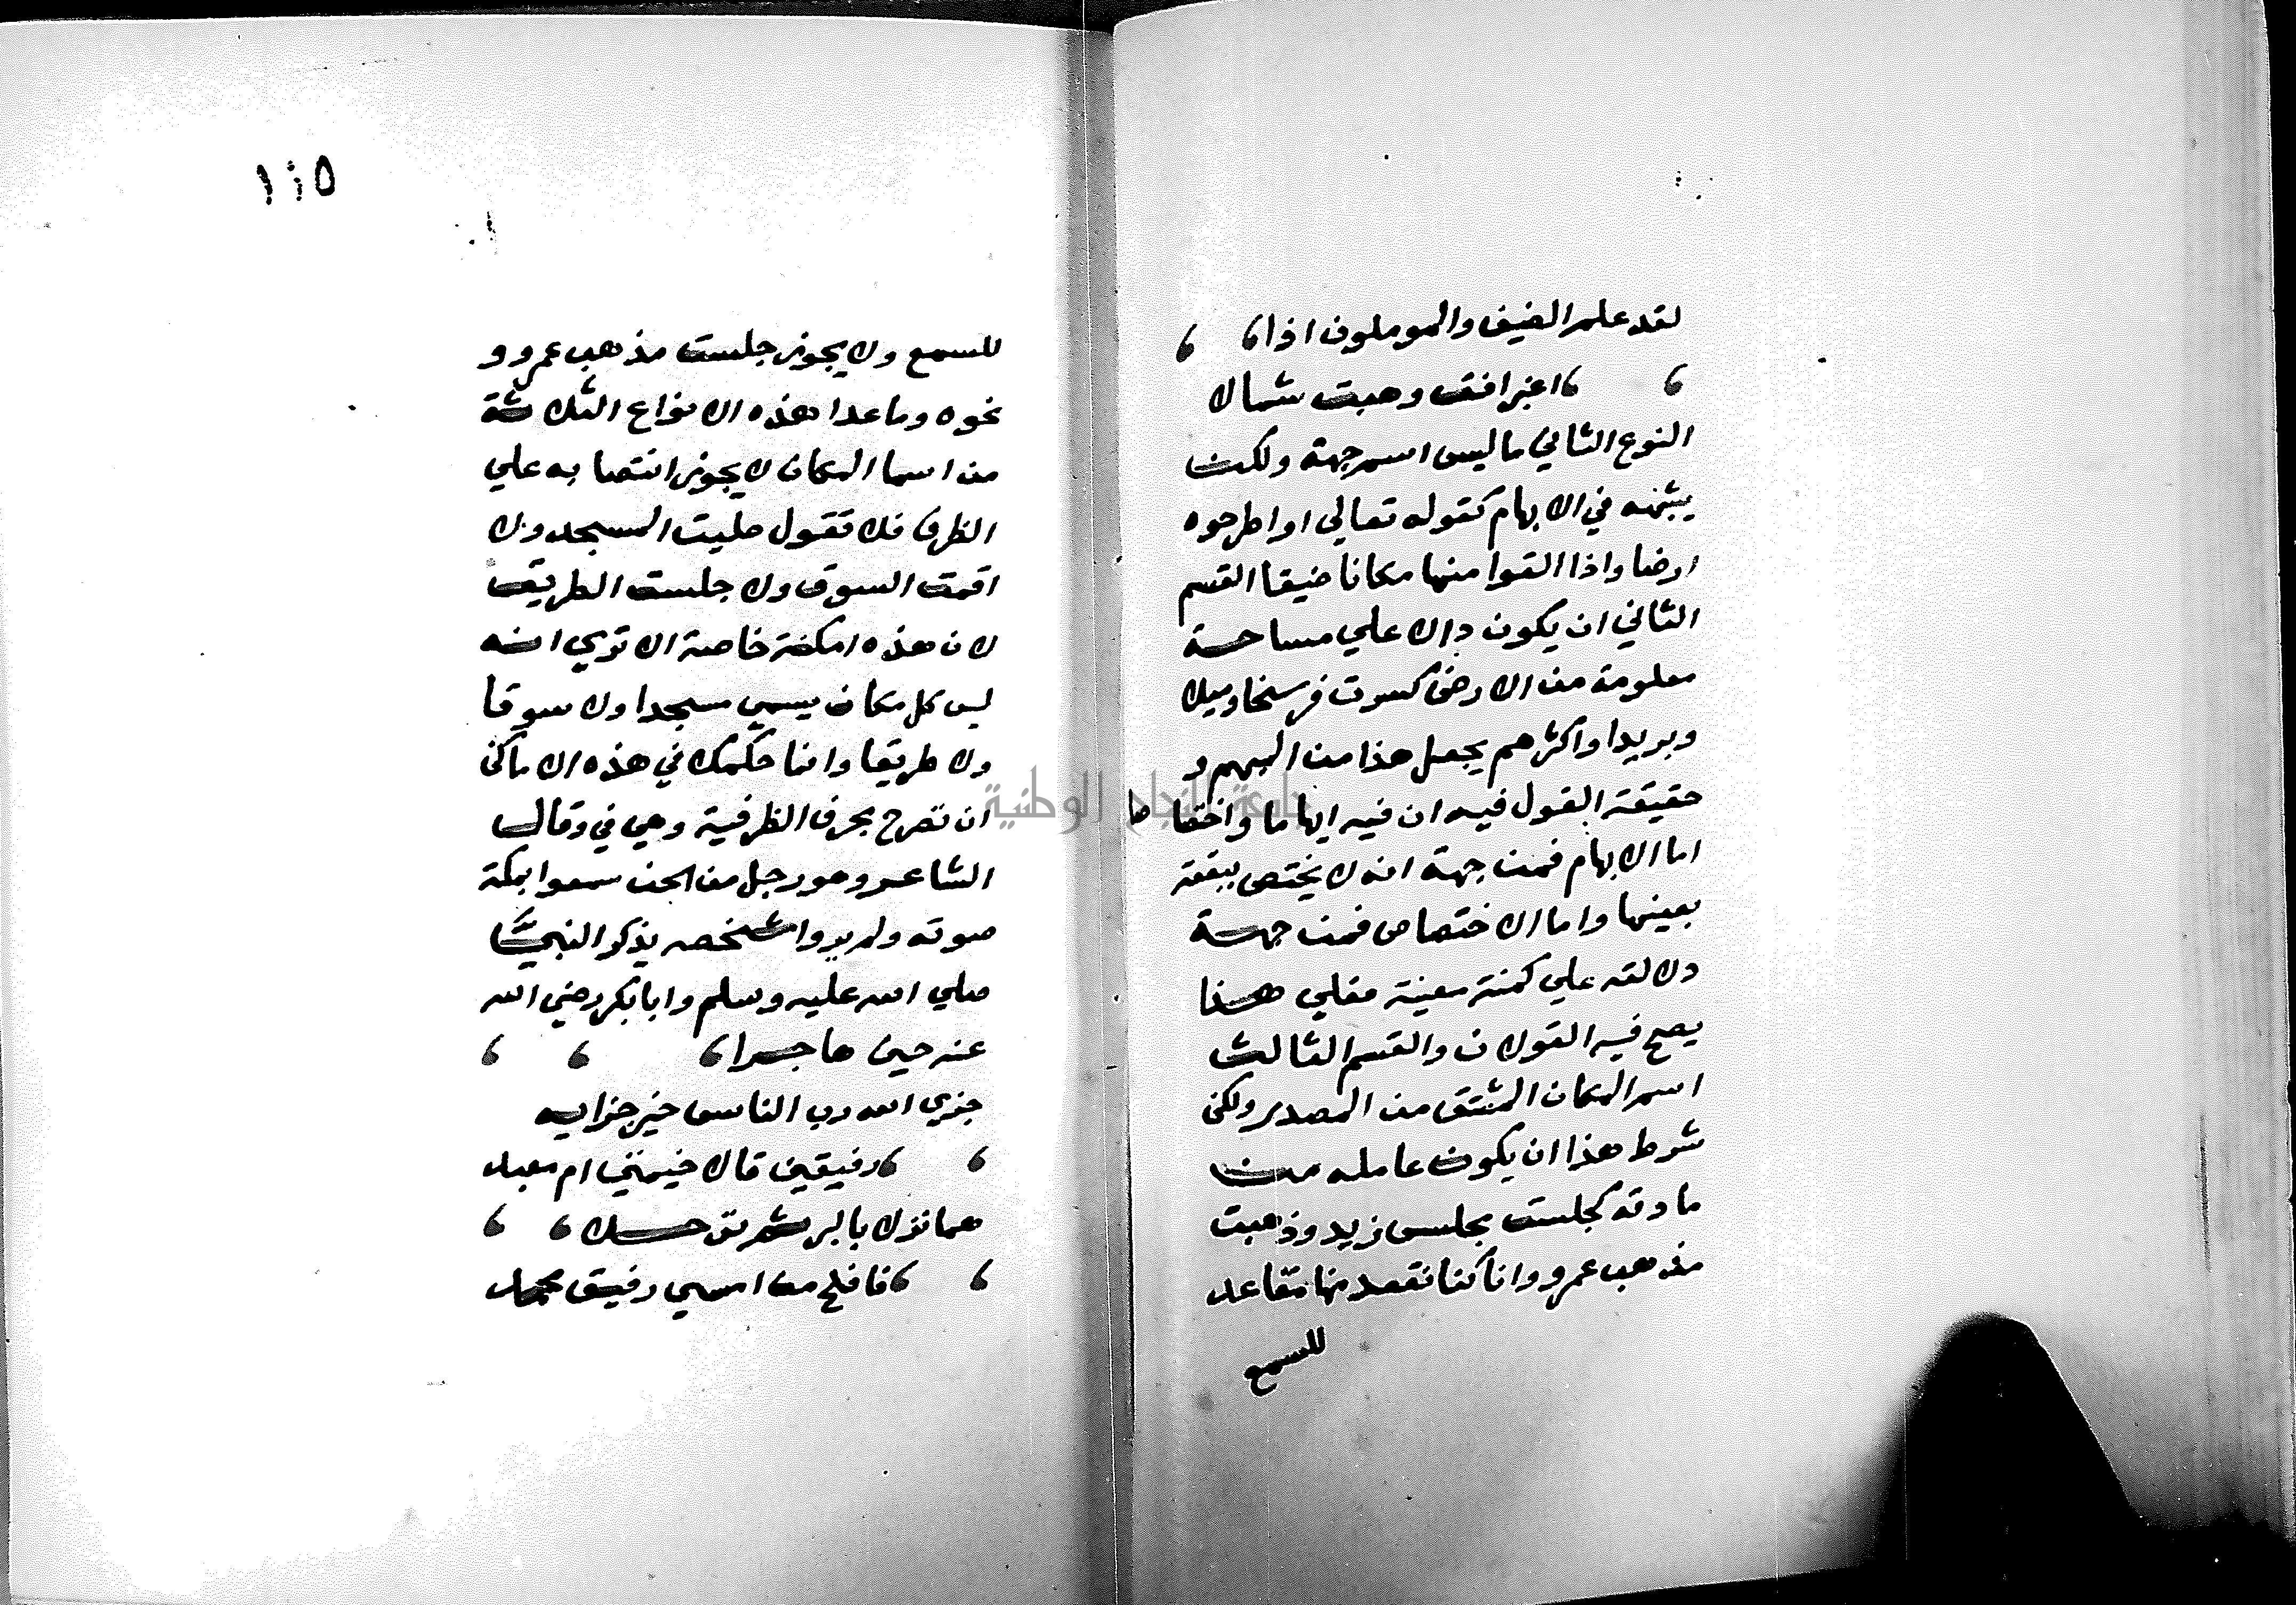 لقد علم الضيف والموملون اذا ، ،
، ، اغبر افق وهبت شمالا
النوع الثاني ما ليس اسم جهة ولكن
يشبهه في الابهام كقوله تعالي او اطرحوه
ارضا واذا القوا منها مكانا ضيقا القسم
الثاني ان يكون دالا علي مساحة
معلومة من الارض كسرت فرسخا وميلا
وبريدا واكثرهم يجعل هذا من المبهم و
حقيقة القول فيه ان فيه ابهاما واختصاصا
اما الابهام فمن جهة انه لا يختص ببقعة
بعينها واما الاختصاص فمن جهة
دلالته علي كمية معينة فعلي هذا
يصح فيه القولان والقسم الثالث
اسم المكان المشتق من المصدر ولكن
شرط هذا ان يكون عامله من
مادته كجلست مجلس زيد وذهبت
مذهب عمرو وانا كنا نقعد منها مقاعد
للسمع
١١٥
للسمع ولا يجوز جلست مذهب عمرو و
نحوه وما عدا هذه الانواع الثلاثة
من اسما المكان لا يجوز انتصابه علي
الظرف فلا تقول صليت المسجد ولا
اقمت السوق ولا جلست الطريق
لان هذه امكنة خاصة الا تري انه
ليس كل مكان يسمي مسجدا ولا سوقا
ولا طريقا وانما حكمك في هذه الاماكن
ان تصرح بحرف الظرفية وهي في وقال
الشاعر وهو رجل من الجن سمعوا بمكة
صوته ولم يروا شخصه يذكر النبي
صلي الله عليه وسلم وابا بكر رضي الله
عنه حين هاجرا ، ، ،
جزي الله رب الناس خير جزايه
، ، رفيقين قالا خيمتي ام معبد
هما نزلا بالبر ثم ترحلا ، ،
، ، فافلح من امسي رفيق محمد
جامعة النجاح الوطنية